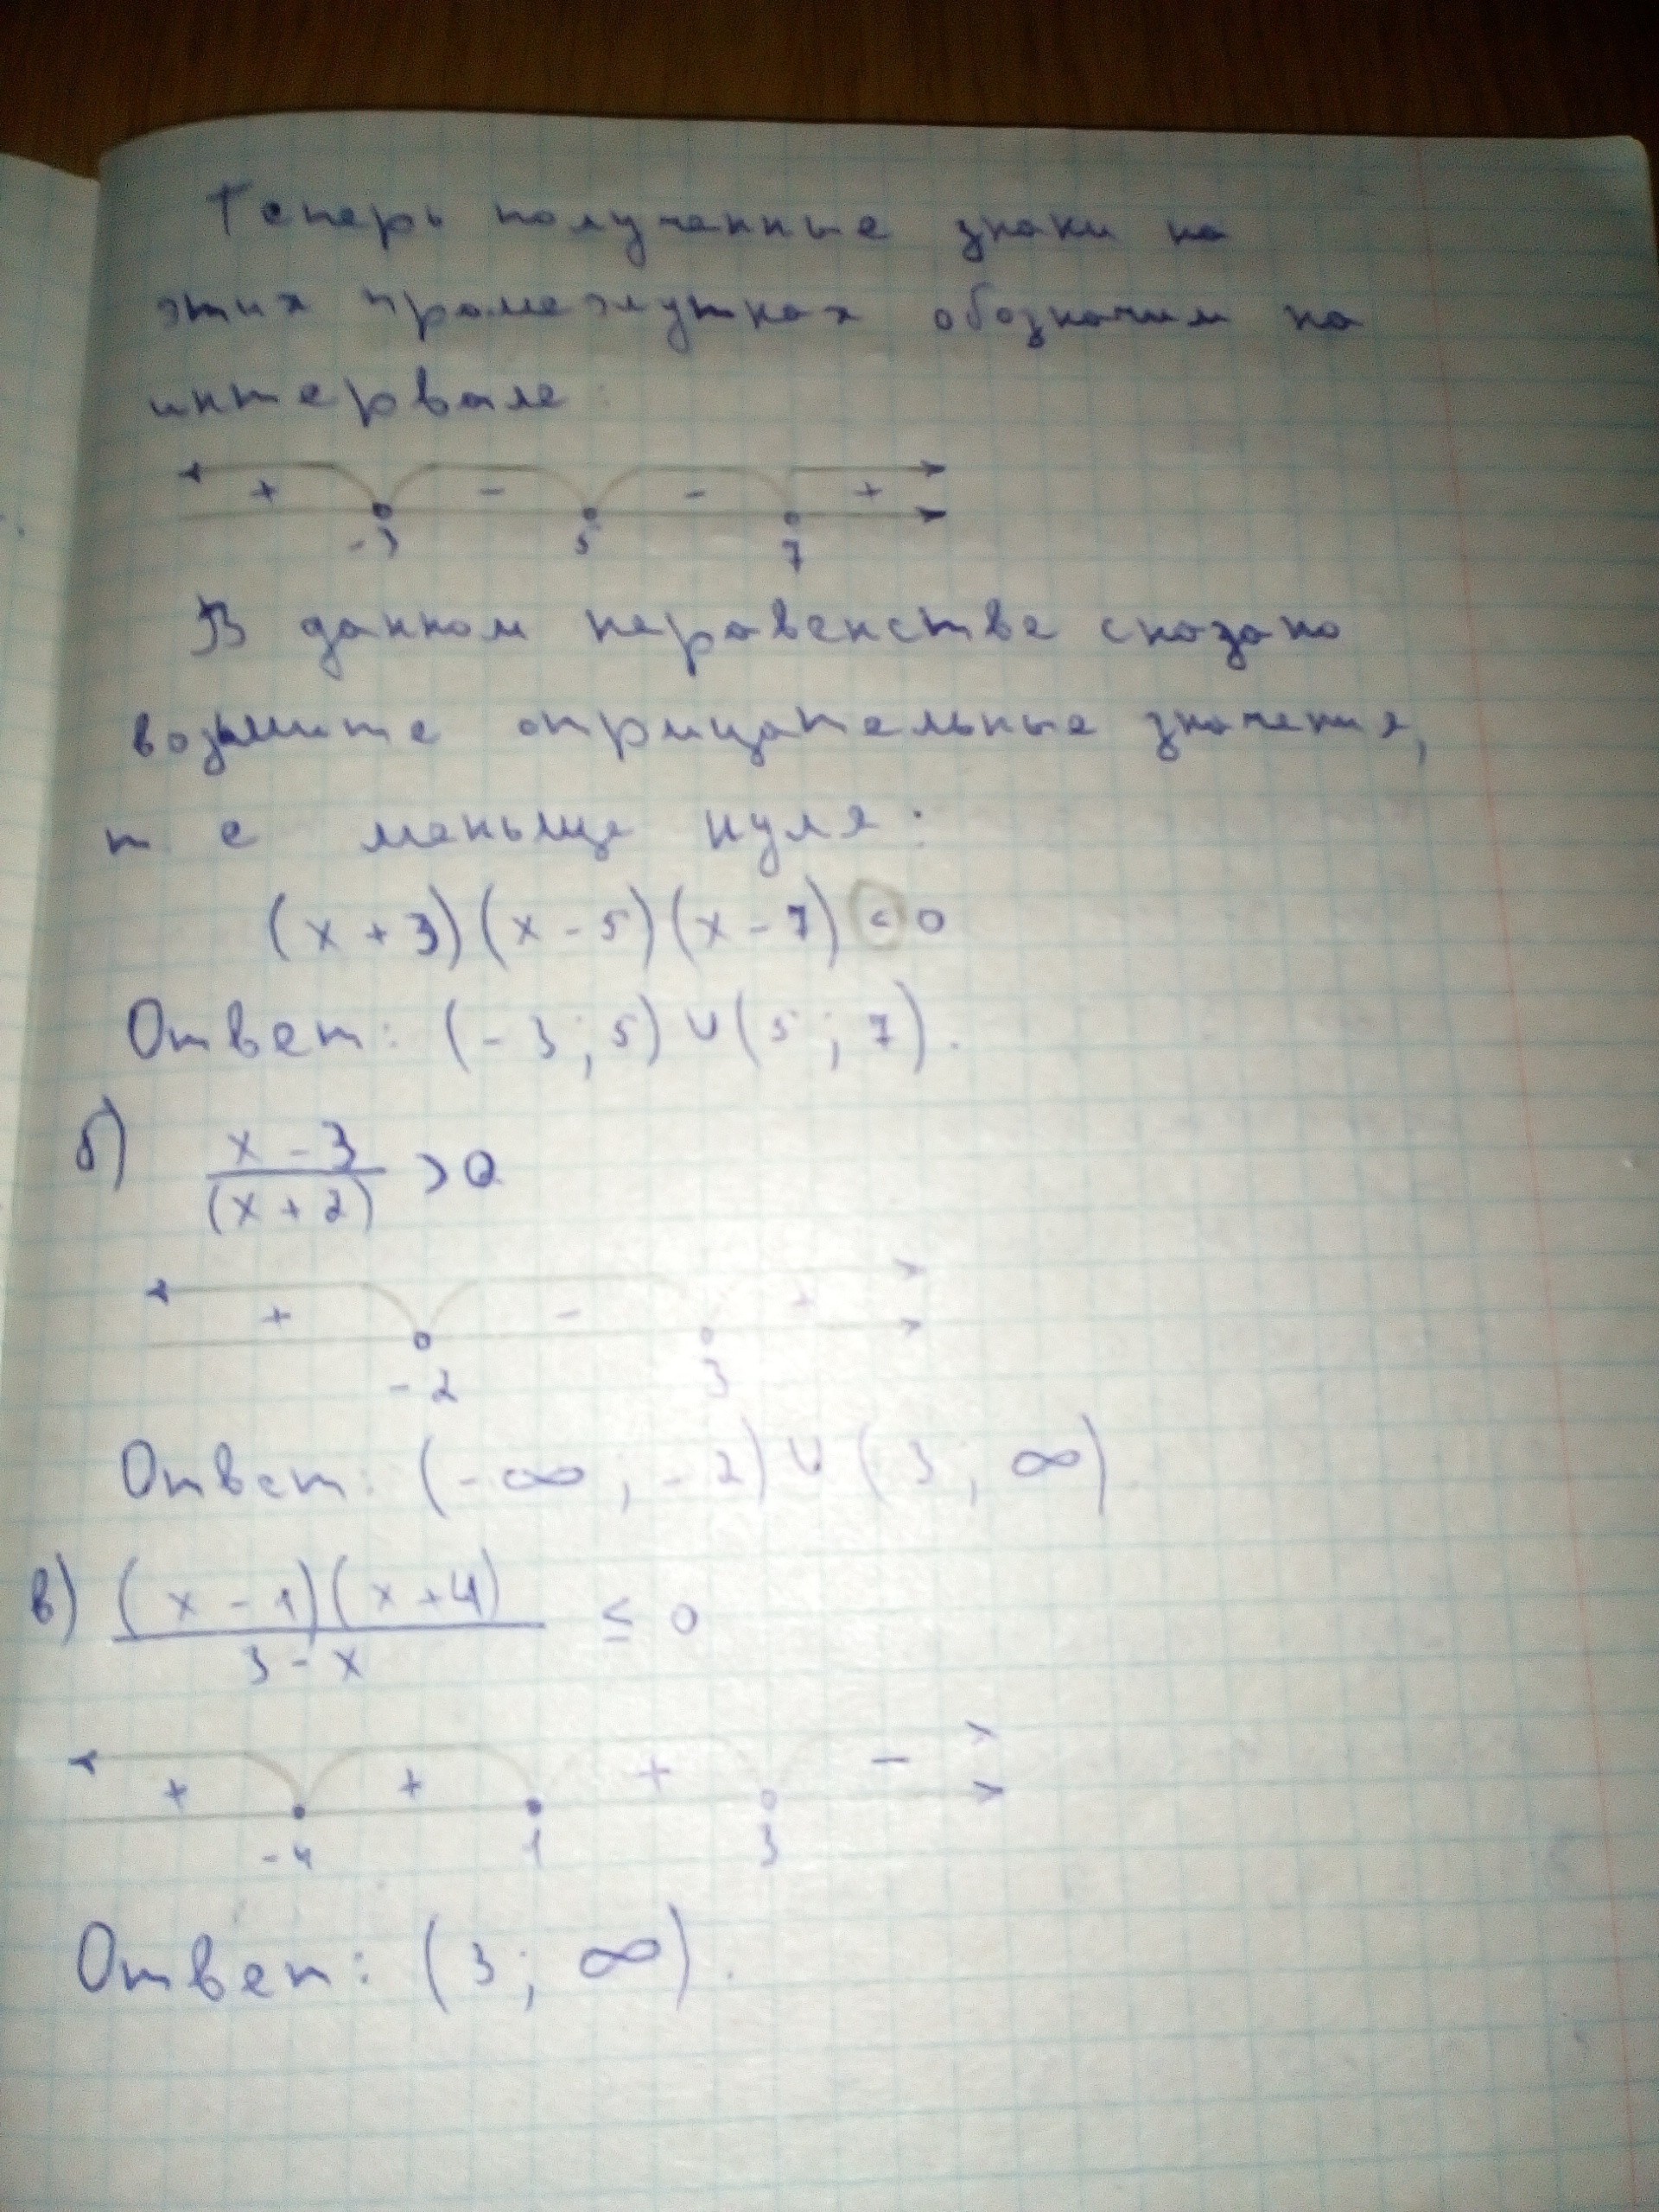 Теперь полученные знаки на
этих промежутках обозначим на
интервале:
+ - - +
-3 5 7
В данном неравенстве сказано
возьмите отрицательные значения,
т. е меньше нуля:
(x + 3)(x - 5)(x - 7) < 0
Ответ: (-3; 5) ∪ (5; 7).
б) x - 3
(x + 2) > 0
+ - +
-2 3
Ответ: (-∞; -2) ∪ (3; ∞).
в) (x - 1)(x + 4)
3 - x ≤ 0
+ + + -
-4 1 3
Ответ: (3; ∞).